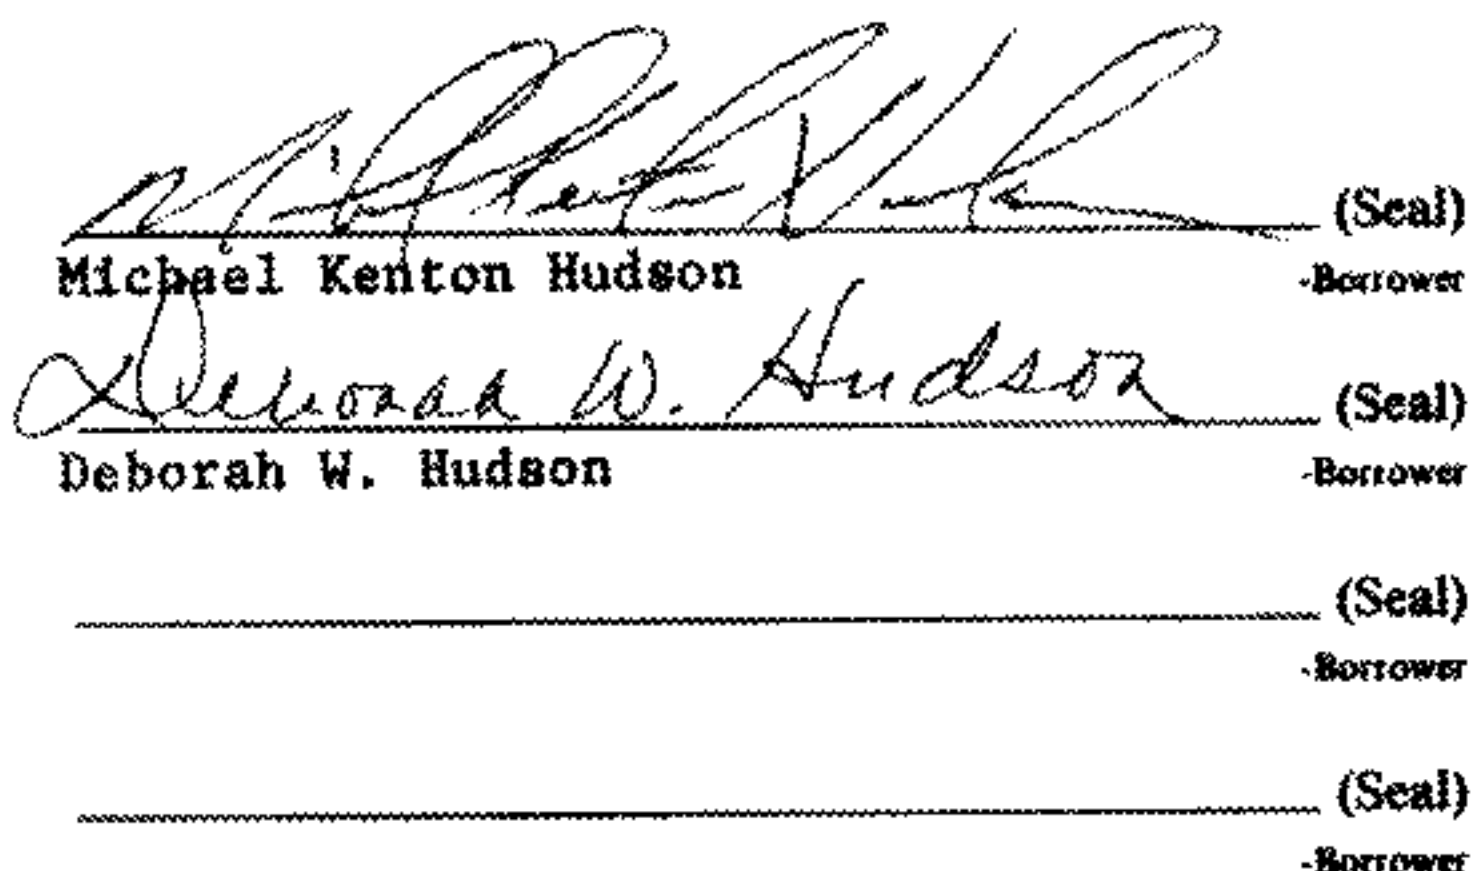 (Seal)
Michael Kenton Hudson -Borrower
Deborah W. Hudson (Seal)
Deborah W. Hudson -Borrower
(Seal)
-Borrower
(Seal)
-Borrower